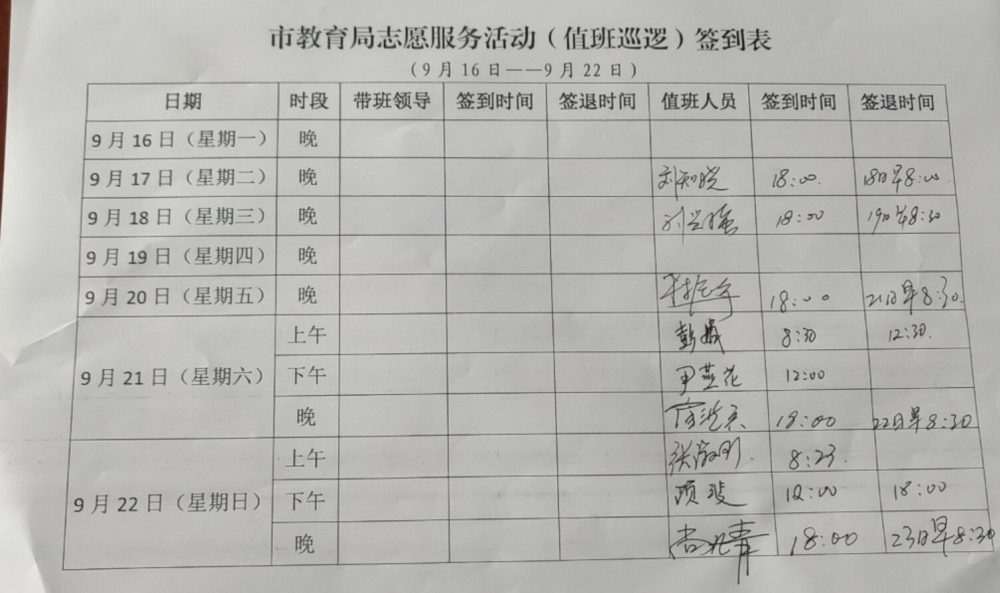 市教育局志愿服务活动（值班巡逻）签到表
（9月16日——9月22日）
日期 时段 带班领导 签到时间 签退时间 值班人员 签到时间 签退时间
9月16日（星期一） 晚
9月17日（星期二） 晚 刘知晓 18:00. 18日早8:00
9月18日（星期三） 晚 18:00 19日早8:30
9月19日（星期四） 晚
9月20日（星期五） 晚 18:00 21日早8:30.
9月21日（星期六） 上午 8:30 12:30.
下午 尹燕花 12:00
晚 18:00 22日早8:30
9月22日（星期日） 上午 8:23.
下午 项斐 12:00 18:00
晚 18:00 23日早8:30